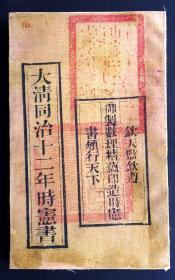 欽天監欽遵
御製數理精蘊印造時憲
書頒行天下
大清同治十二年時憲書